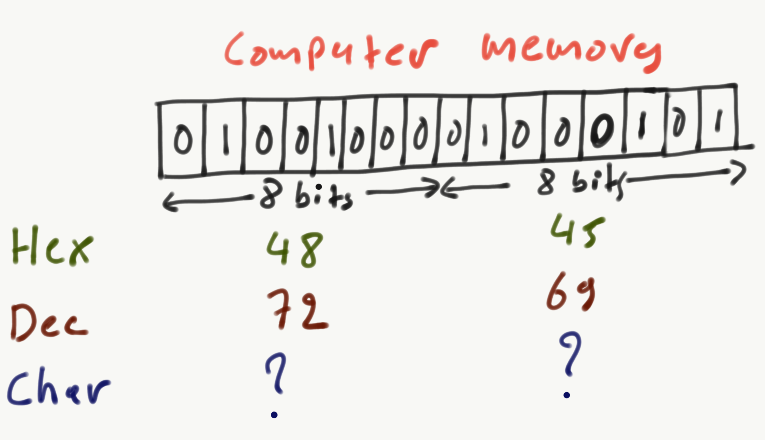 Computer memory
0 1 0 0 1 0 0 0 0 1 0 0 0 1 0 1
8 bits 8 bits
Hex 48 45
Dec 72 69
Char ? ?